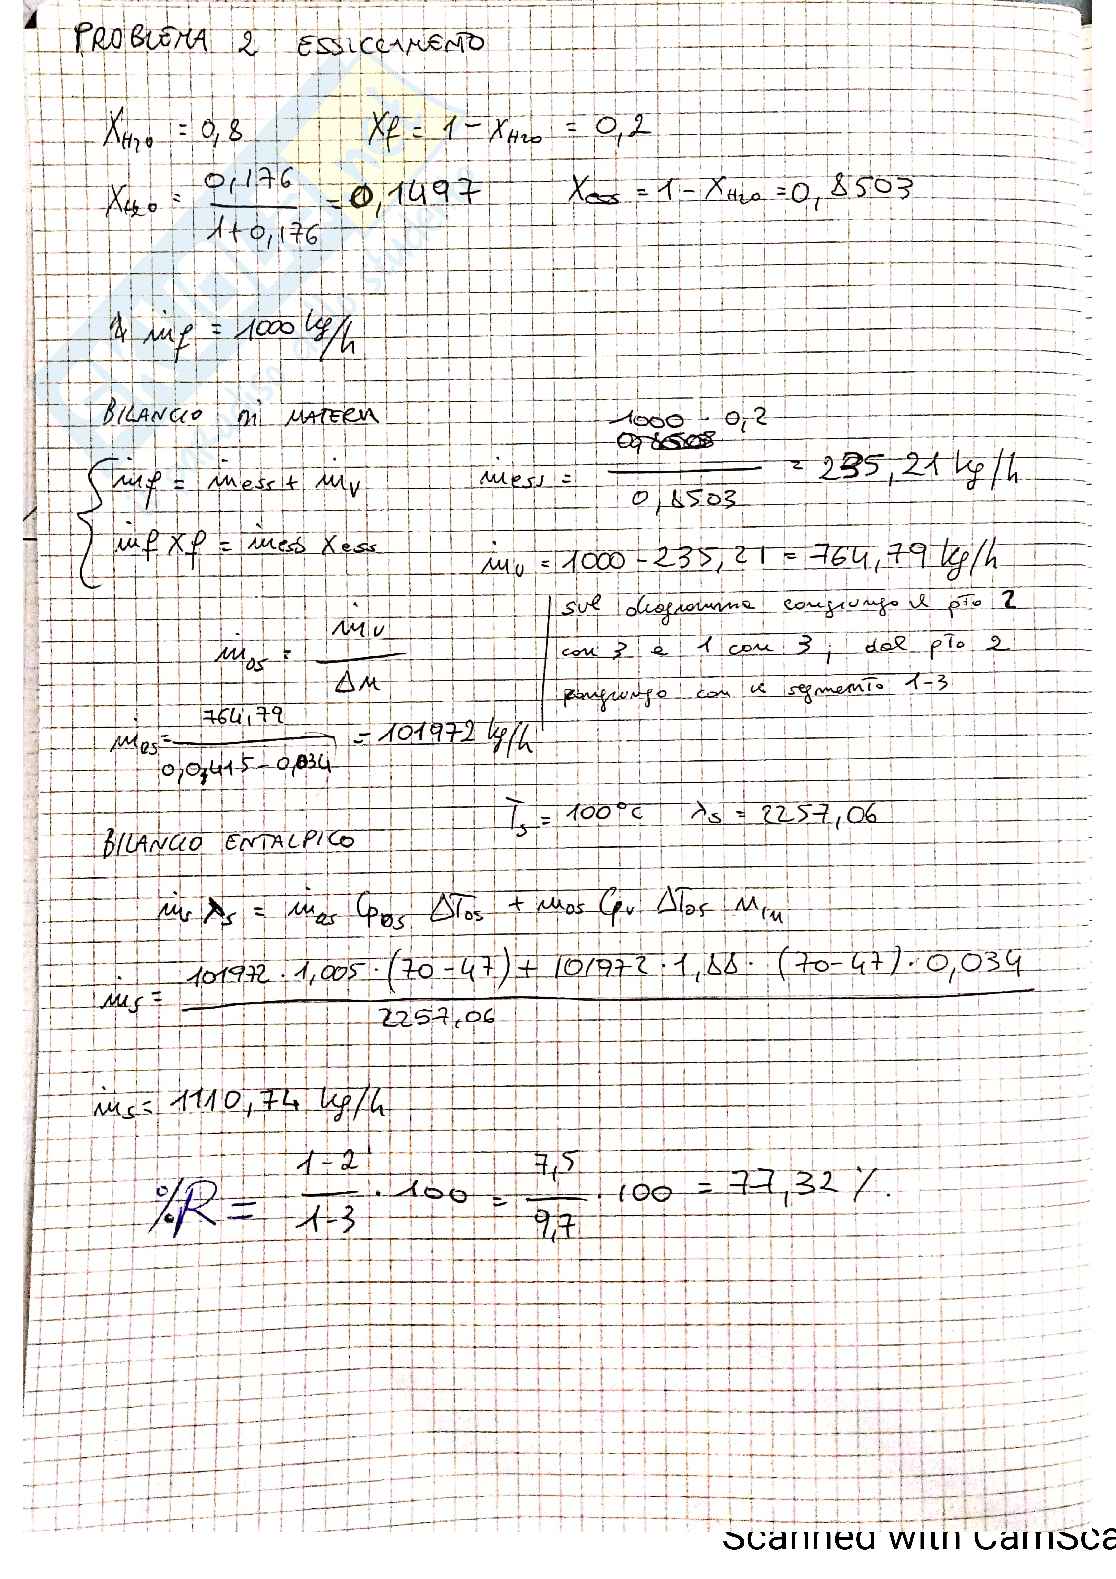 PROBLEMA 2 ESSICCAMENTO
X_H2O = 0,8 Xf = 1 - X_H2O = 0,2
X_H2O = 0,176 / 1+0,176 = 0,1497 X_ess = 1 - X_H2O = 0,8503
ṁf = 1000 kg/h
BILANCIO DI MATERIA
ṁf = ṁess + ṁv
ṁf Xf = ṁess Xess
ṁess = 1000 · 0,2 / 0,8503 = 235,21 kg/h
ṁv = 1000 - 235,21 = 764,79 kg/h
ṁas = ṁv / ΔM
sul diagramma congiungo il pto 2
con 3 e 1 con 3, dal pto 2
congiungo con il segmento 1-3
ṁas = 764,79 / 0,0415 - 0,034 = 101972 kg/h
Ts = 100°C λs = 2257,06
BILANCIO ENTALPICO
ṁs λs = ṁas Cpas ΔTas + ṁas Cpv ΔTas Min
ṁs = 101972 · 1,005 · (70-47) + 101972 · 1,88 · (70-47) · 0,034 / 2257,06
ṁs = 1110,74 kg/h
%R = 1-2' / 1-3 · 100 = 7,5 / 9,7 · 100 = 77,32 %.
Scanned with CamSca